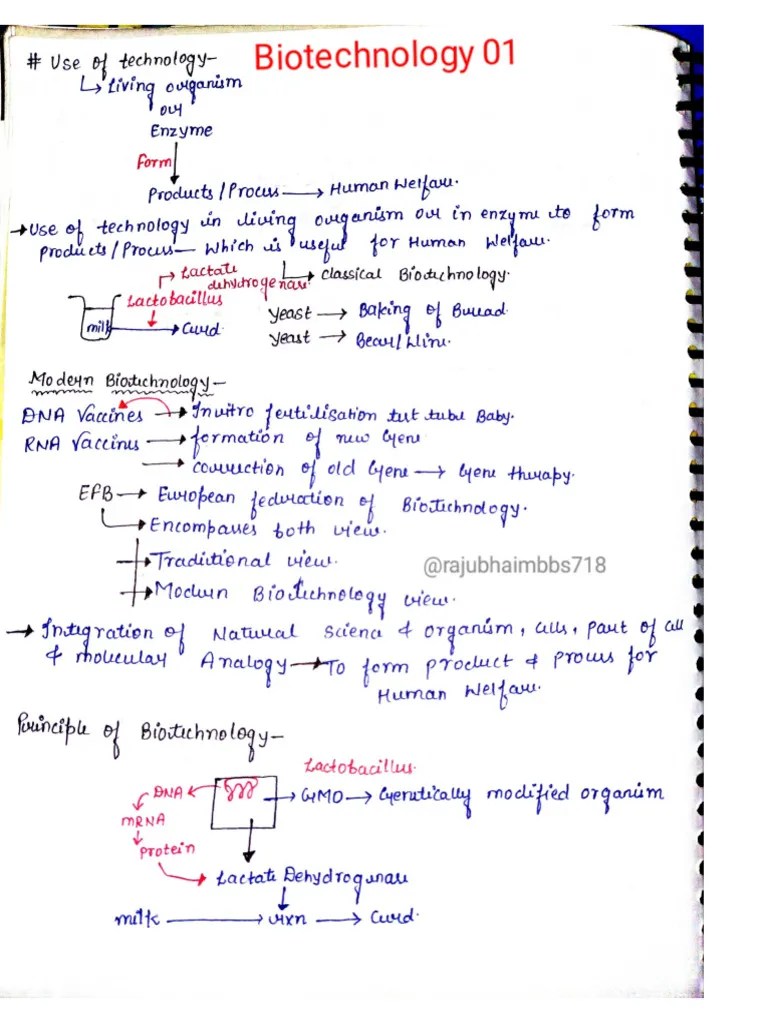 Biotechnology 01
# Use of technology-
↳ Living organism
or
Enzyme
Form
Products/Process → Human Welfare.
→ Use of technology in living organism or in enzyme to form
products/Process— Which is useful for Human Welfare.
↳ classical Biotechnology.
→ Lactate
dehydrogenase
Lactobacillus
milk → Curd.
Yeast → Baking of Bread.
Yeast → Bear/Wine.
Modern Biotechnology—
DNA Vaccines → Invitro fertilisation tut tube Baby.
RNA Vaccines → formation of new Gene
→ correction of old Gene → Gene therapy.
EFB → European federation of Biotechnology.
↳ Encompasses both view.
→ Traditional view.
→ Modern Biotechnology view.
→ Integration of Natural Science & organism, cells, part of cell
& molecular Analogy → To form product & process for
Human Welfare.
@rajubhaimbbs718
Principle of Biotechnology—
Lactobacillus.
DNA
mRNA
protein
→ GMO → Genetically modified organism
Lactate Dehydrogenase
milk → rxn → Curd.